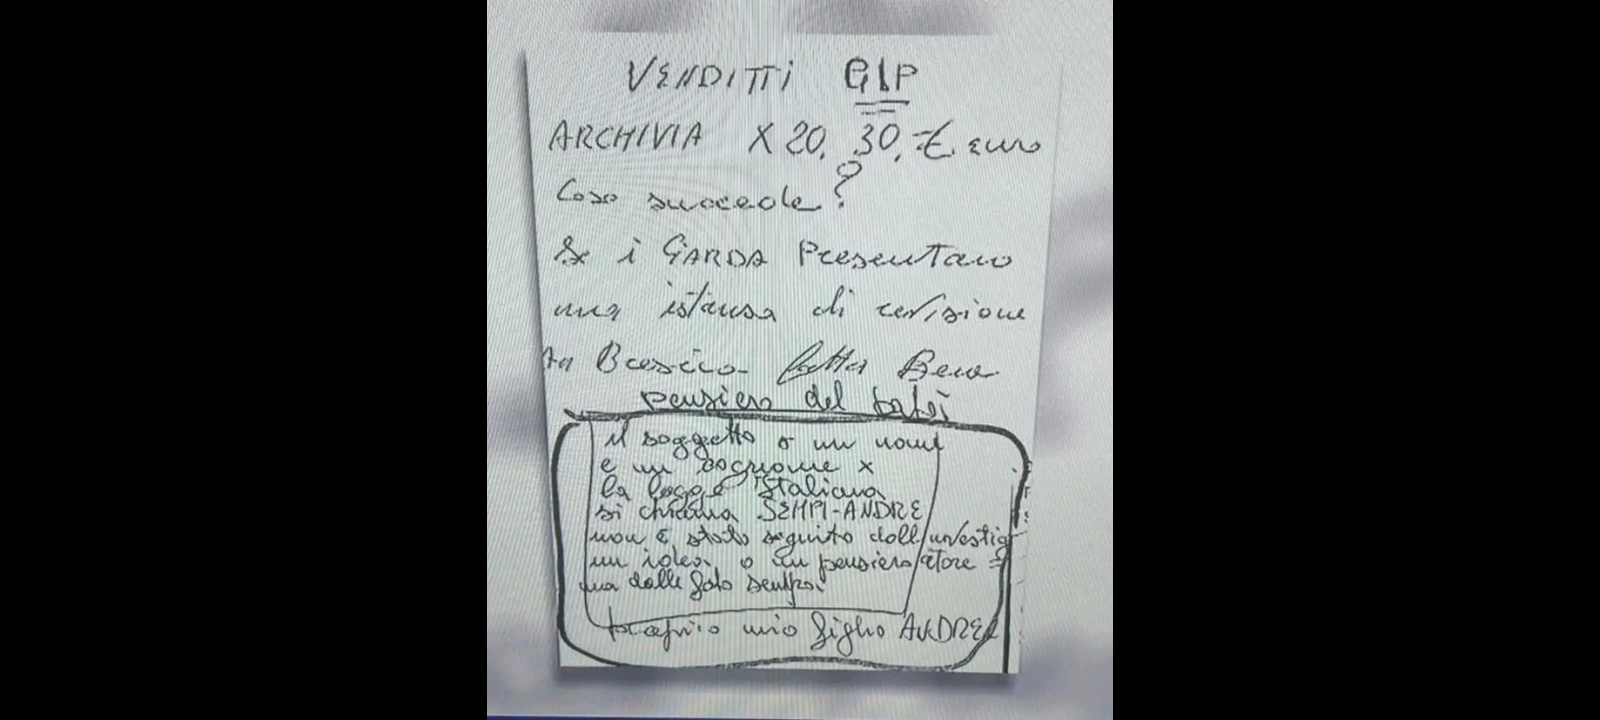 VENDITTI GIP
ARCHIVIA X 20. 30. € euro
Coso succede?
Se i GARDA Presentano
una istansa di revisione
Bene
pensiero del
il soggetto o un nome
e un cognome x
la legge Italiana
si chiama SEMPI-ANDRE
non è stato seguito dall investig
un idea o un pensiero atore =
ma dalle foto sempre
mio figlio ANDREA